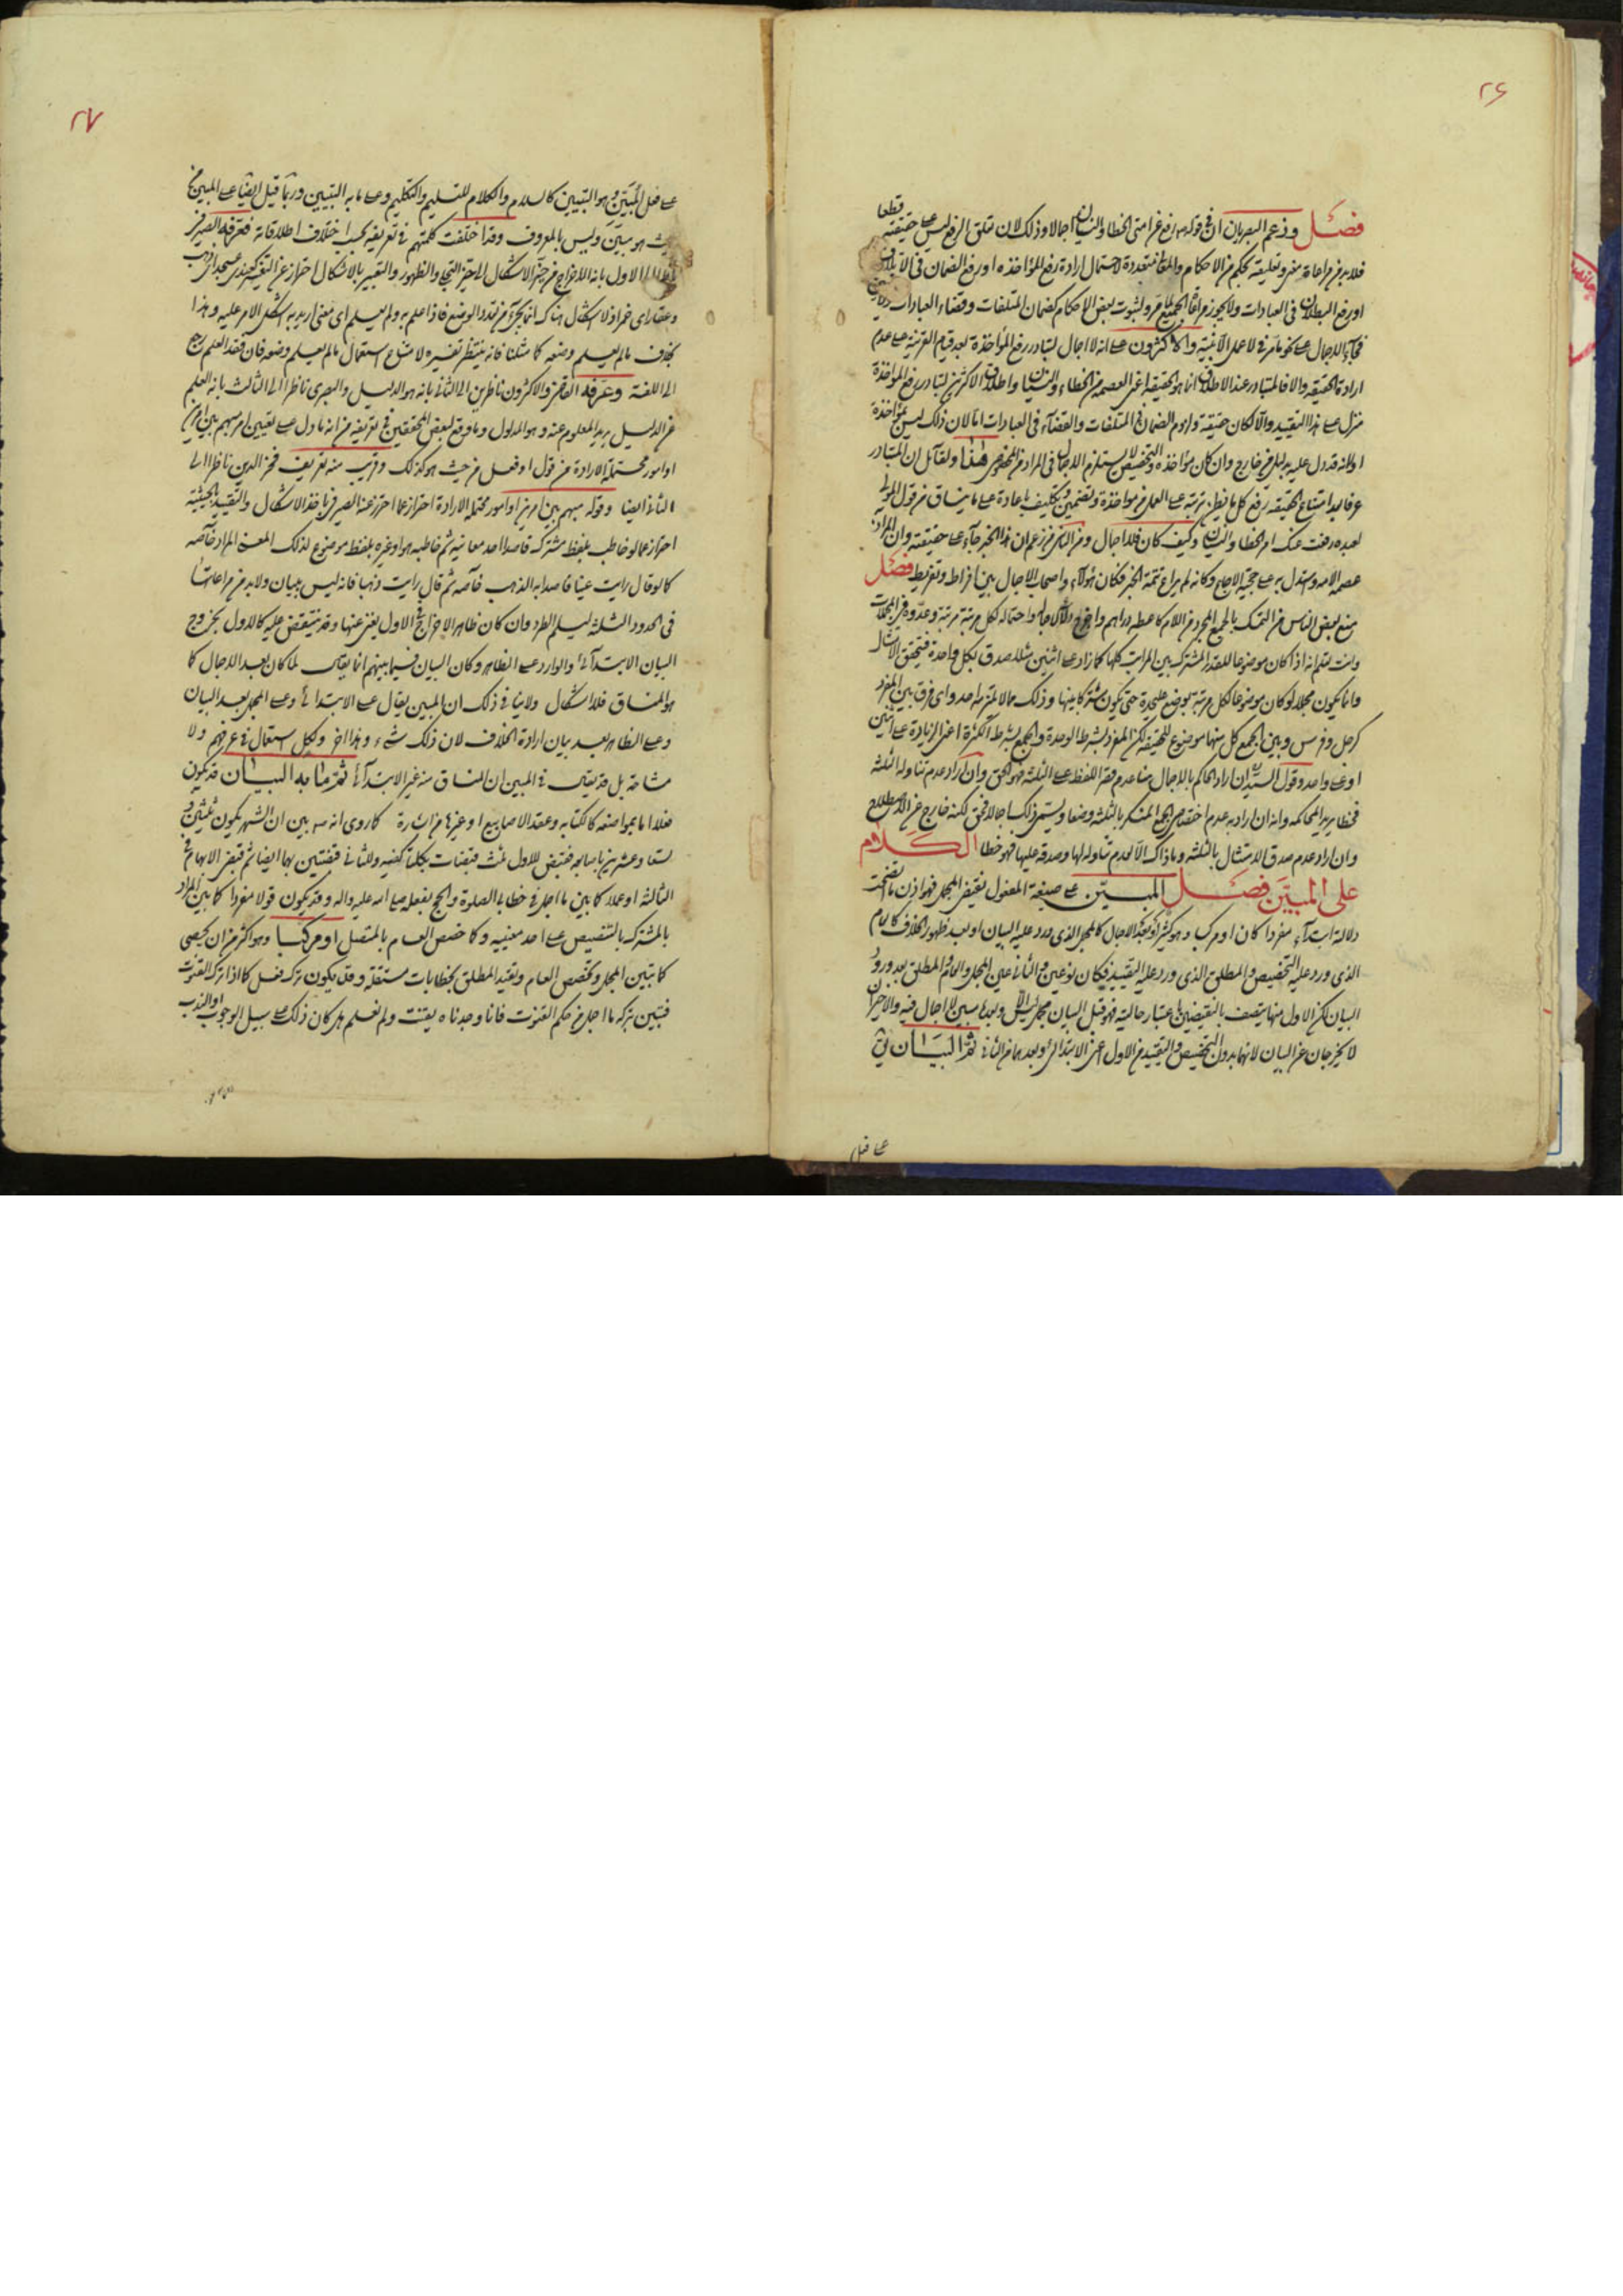 ٢۶
فصل وزعم البصريان ان فى قوله رفع عن امتى الخطا والنسيان اجمالا وذلك لان تعلق الرفع ليس على حقيقته قطعا
فلا بد من مراعاة معنى وتعليقه بحكم من الاحكام متعددة لاحتمال ارادة رفع المؤاخذه او رفع الضمان فى الاتلاف
او رفع البطلان فى العبادات ولا يجوز مراعاة الجميع لما مر ولثبوت بعض الاحكام كضمان المتلفات وقضاء العبادات
فجاء الاجمال على نحو ما مر فى لا عمل الا بنية والاكثرون على انه لا اجمال لتبادر رفع المؤاخذة بعد قيام القرينة على عدم
ارادة الحقيقه والا فالمتبادر عند الاطلاق انما هو الحقيقه اعنى العصمه من الخطاء والنسيان واطلاق الاكثرين لتبادر رفع المؤاخذة
منزل على هذا التقييد والا لكان حقيقة ولزوم الضمان فى المتلفات والقضاء فى العبادات اما لان ذلك ليس بمؤاخذة
او لانه قد دل عليه دليل من خارج وان كان مؤاخذه والتخصيص لا يستلزم الاجمال فى المراد من المخصوص هذا ولقائل ان المتبادر
عرفا بعد امتناع الحقيقه رفع كل ما يظن ترتبه على العمل من مؤاخذة وتضمين وتكليف باعادة على ما ينساق من قول المولى
لعبده رفعت عنك امر الخطا والنسيان وكيف كان فلا اجمال ومن الناس من زعم ان هذا الخبر جاء على حقيقته وان المراد
عصمه الامه وستدل به على حجية الاجماع وكانه لم يراع تتمة الخبر فكان هؤلاء واصحاب الاجمال بين افراط وتفريط فصل
منع بعض الناس من التمسك بالجمع المجرد من اللام كاعطه دراهم واحتماله لكل مرتبة مرتبة وعدوه فى المجملات
وانت تعلم انه اذا كان موضوعا للقدر المشترك بين المراتب كلها كما زاد على اثنين مثلا صدق بكل واحدة فتحقق الامتثال
وانما يكون مجملا لو كان موضوعا لكل مرتبة بوضع عليحدة حتى يكون مشتركا بينها وذلك مما لا يلتزمه احد واى فرق بين المفرد
كرجل وفرس وبين الجمع كل منهما موضوع للحقيقه لكن المفرد بشرط الوحدة والجمع بشرط الكثرة اعنى الزيادة على اثنين
او على واحد وقول السيد ان اراد الحاكم بالاجمال هنا عدم قصر اللفظ على الثلثه فهو الحق وان اراد عدم تناوله الثلثه
فخطا يريد المحاكمه وانه ان اراد به عدم اختصاص الجمع المنكر بالثلثه وضعا ويسمى ذلك اجمالا فحق لكنه خارج عن الاصطلاح
وان اراد عدم صدق الامتثال بالثلثه وما ذاك الا لعدم تناوله لها وصدقه عليها فهو خطا الكلام
على المبيّن فصل المبيّن على صيغة المفعول نقيض المجمل فهو اذن ما اتضحت
دلالته ابتداء مفردا كان او مركبا وهو كثير او بعد الاجمال كالمجمل الذى ورد عليه البيان او بعد ظهور الخلاف كالعام
الذى ورد عليه التخصيص والمطلق الذى ورد عليه التقييد فيكان نوعين والثانى عين المجمل والعام والمطلق بعد ورود
البيان لكن الاول منها يتصف بالنقيضين باعتبار حالتيه فهو قبل البيان مجمل ليس الا وبعده مبين لا اجمال فيه والاخيران
لا يخرجان عن البيان لانهما بدون التخصيص والتقييد من الاول اعنى الابتدائى وبعدهما من الثانى ثم البيان يق
على فعل
٢٧
على فعل المبيّن وهو التبيين كالسلام والكلام للتسليم والتكليم وعلى ما به التبيين وربما قيل ايضا على المبين من
حيث هو مبين وليس بالمعروف وقد اختلفت كلمتهم فى تعريفه بحسب اختلاف اطلاقاته فعرفه الصيرفى
ناظرا الى الاول بانه الاخراج من حيز الاشكال الى حيز التجلى والظهور والتعبير بالاشكال احتراز عن
وعقار اى خمر اذ لا اشكال هناك انما يجئ من تعدد الوضع فاذا علم به ولم يعلم اى معنى اريد به اشكل الامر عليه وهذا
بخلاف مالم يعلم وضعه كما مثلنا فانه ينتظر تفسيره لامتناع استعمال مالم يعلم وضعه فان فقد العلم رجع
الى اللغة وعرفه القاضى والاكثرون ناظرين الى الثانى بانه هو الدليل والبصرى ناظرا الى الثالث بانه العلم
عن الدليل يريد المعلوم عنه وهو المدلول وما وقع لبعض المحققين فى تعريفه من انه ما دل على تعيين امر مبهم بين امرين
او امور محتملة الارادة من قول او فعل من حيث هو كذلك وقريب منه تعريف فخر الدين ناظرا الى
الثانى ايضا وقوله مبهم بين امرين او امور محتمله الارادة احتراز عما احترز عنه الصيرفى باخذ الاشكال والتقييد بالحيثية
احتراز عما لو خاطب بلفظ مشترك قاصدا احد معانيه ثم خاطبه هو او غيره بلفظ موضوع لذلك المعنى المراد خاصه
كما لو قال رايت عينا قاصدا به الذهب خاصه ثم قال رايت ذهبا فانه ليس ببيان ولا بد من مراعاتها
فى الحدود الثلثه ليسلم الطرد وان كان ظاهر الاخراج فى الاول يغنى عنها وقد ينتقض عليه كالاول بخروج
البيان الابتدائى والوارد على الظاهر وكان البيان فيما بينهم انما يقال لما كان بعد الاجمال كما
هو المنساق فلا اشكال ولا ينافى ذلك ان المبين يقال على الابتدائى وعلى المجمل بعد البيان
وعلى الظاهر بعد بيان ارادة الخلاف لان ذلك شىء وهذا اخر ولكل استعمال فى عرفهم ولا
مشاحة بل قد يقال فى المبين ان المنساق منه غير الابتدائى ثم ما به البيان قد يكون
فعلا اما بمواضعه كالكتابه وعقد الاصابع او غيرها من اشارة كما روى انه ص بين ان الشهر يكون ثلثين و
تسعا وعشرين باصابعه فقبض للاول ثلث قبضات بكلتا كفيه وللثانى قبضتين بهما ايضا ثم قبض الابهام فى
الثالثه او عملا كما بين ما اجمل فى خطابى الصلوة والحج بفعله صلى الله عليه واله وقد يكون قولا مفردا كما بين المراد
بالمشترك بالتنصيص على احد معنييه وكما خصص العام بالمتصل او مركبا وهو اكثر من ان يحصى
كما بتبين المجمل وتخصص العام وتقييد المطلق بخطابات مستقلة وقد يكون ترك فعل كما اذا ترك القنوت
فتبين بتركه ما اجمل من حكم القنوت فانا وجدناه يقنت ولم نعلم هل كان ذلك على سبيل الوجوب او الندب